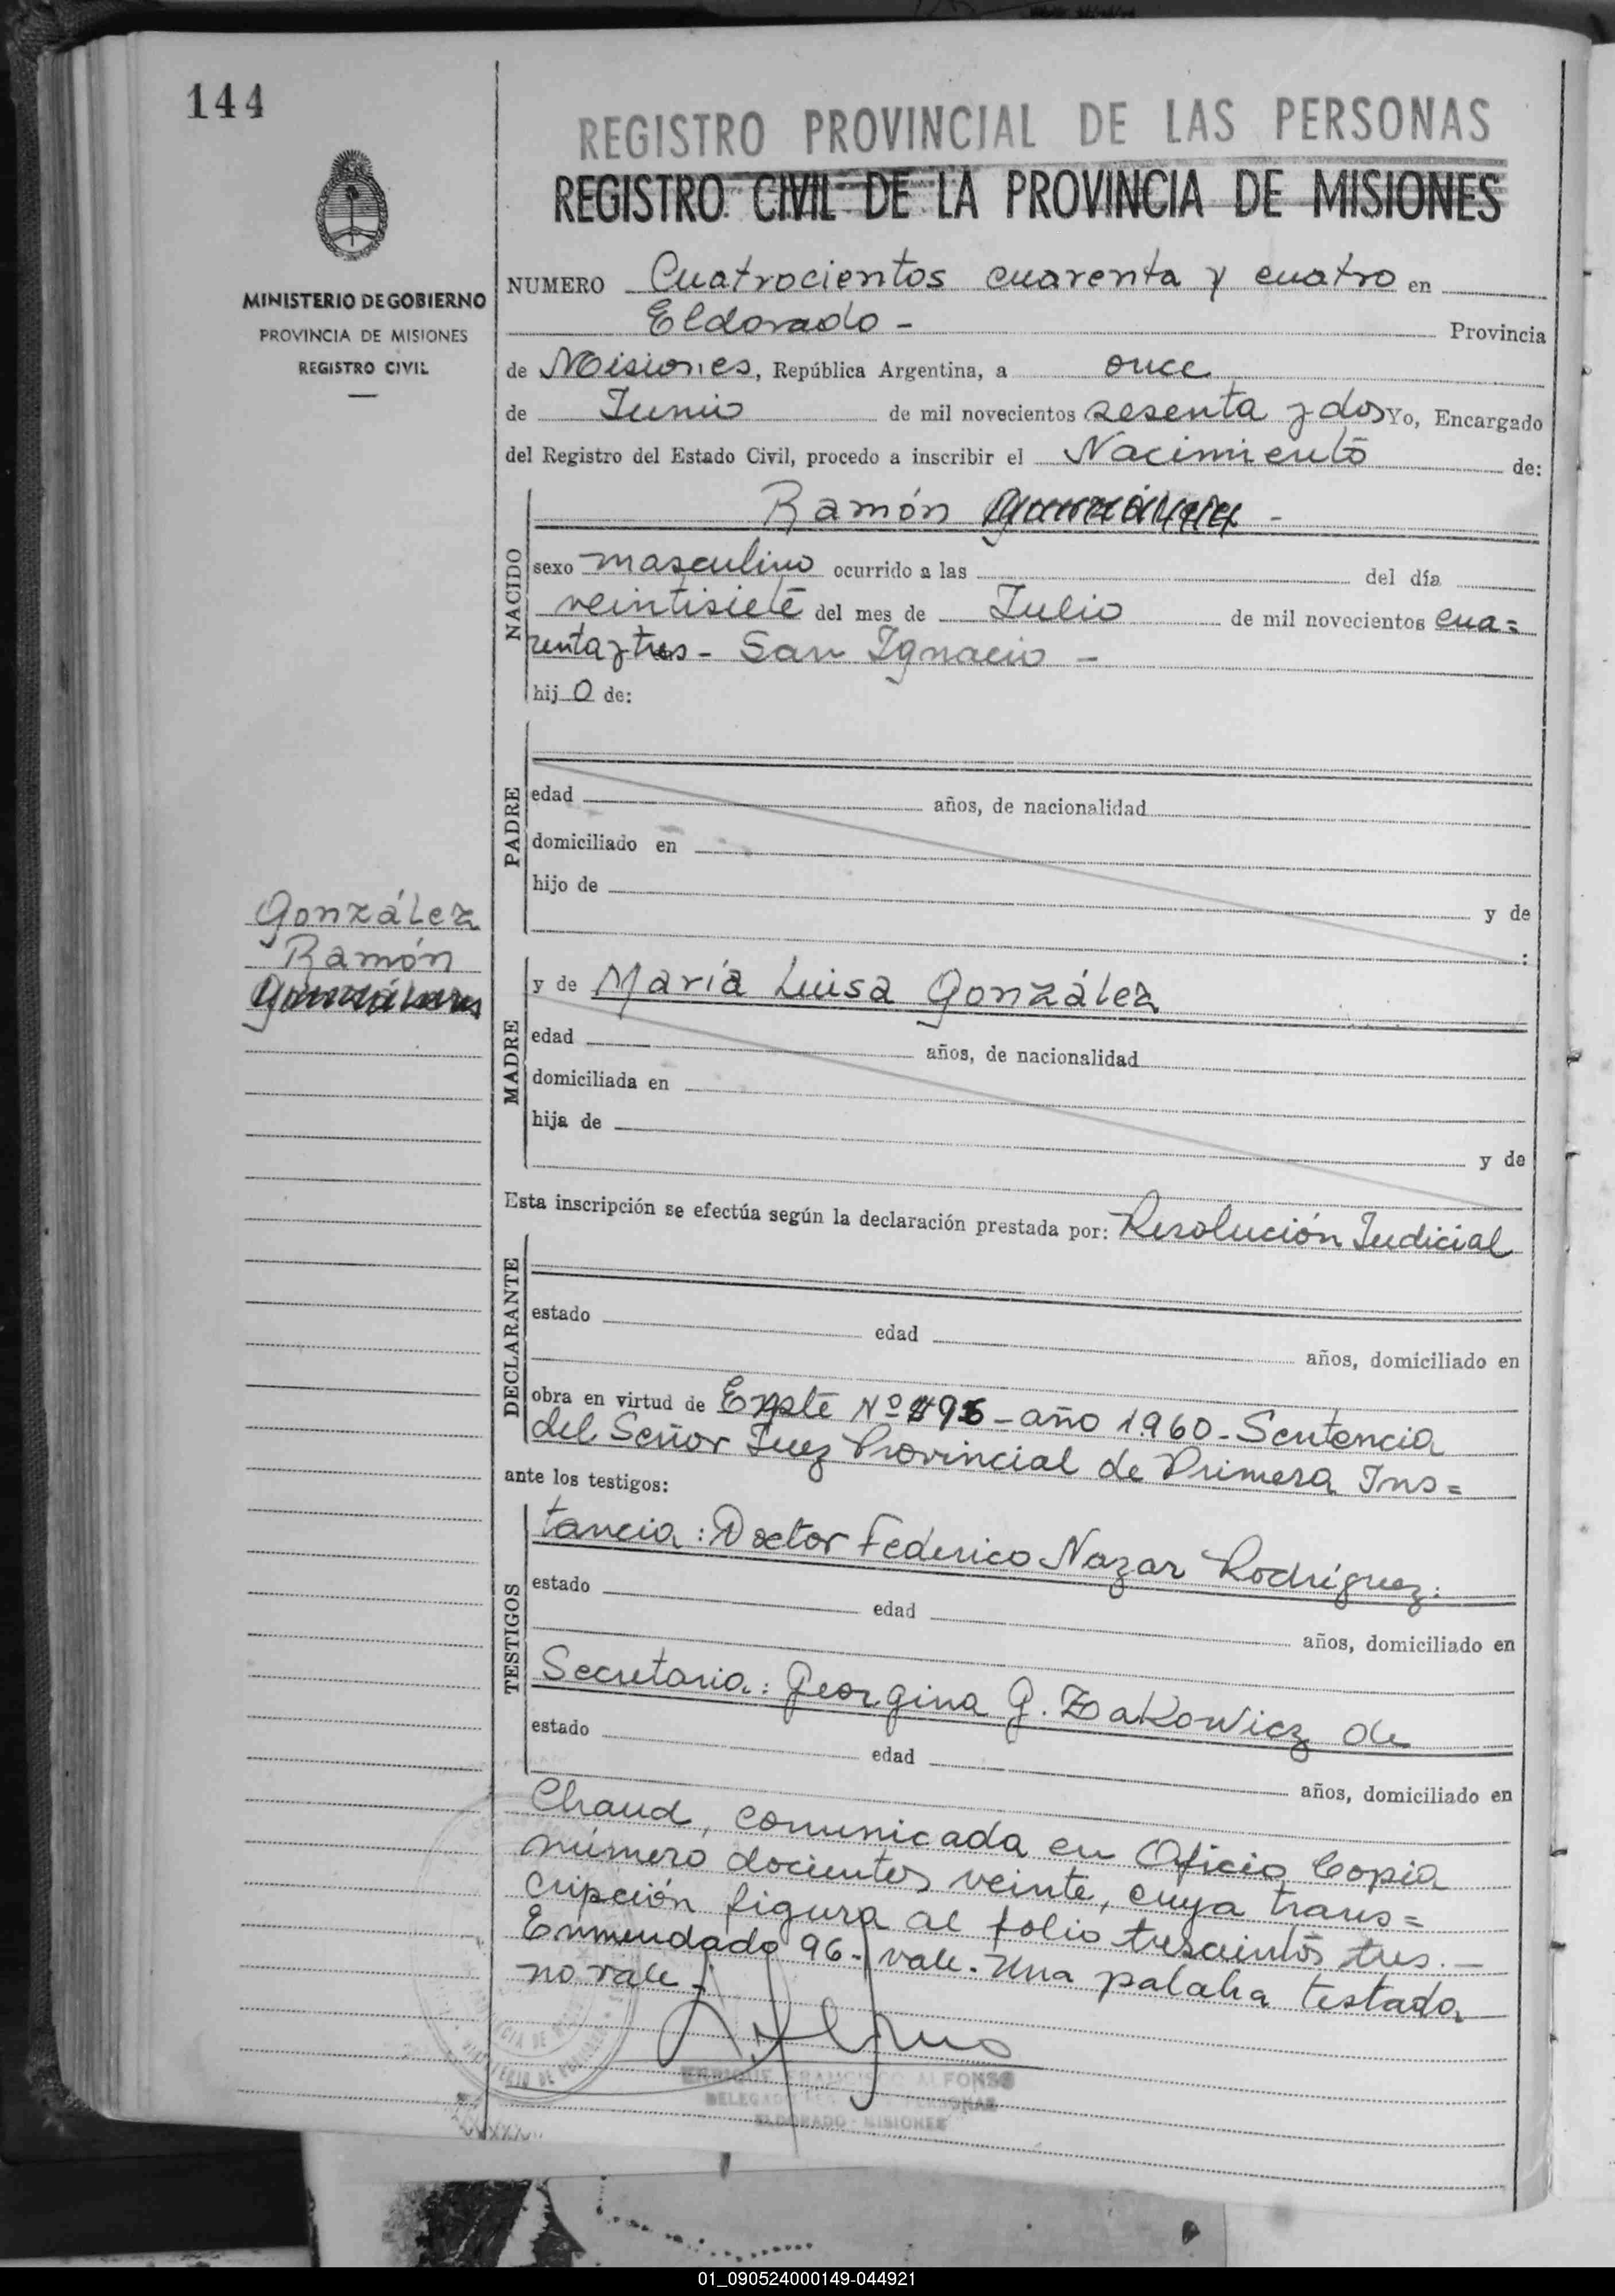 144
REGISTRO PROVINCIAL DE LAS PERSONAS
REGISTRO CIVIL DE LA PROVINCIA DE MISIONES
MINISTERIO DE GOBIERNO
PROVINCIA DE MISIONES
REGISTRO CIVIL
NUMERO Cuatrocientos cuarenta y cuatro en
Eldorado - Provincia
de Misiones, República Argentina, a once
de Junio de mil novecientos sesenta y dos Yo, Encargado
del Registro del Estado Civil, procedo a inscribir el Nacimiento de:
NACIDO
Ramón -
sexo masculino ocurrido a las del día
veintisiete del mes de Julio de mil novecientos cua=
renta y tres - San Ignacio -
hijo de:
PADRE
edad años, de nacionalidad
domiciliado en
hijo de y de
:
González
Ramón
MADRE
y de María Luisa González
edad años, de nacionalidad
domiciliada en
hija de y de
Esta inscripción se efectúa según la declaración prestada por: Resolución Judicial
DECLARANTE
estado edad años, domiciliado en
obra en virtud de Expte Nº 96 - año 1.960 - Sentencia
del Señor Juez Provincial de Primera Ins=
ante los testigos:
TESTIGOS
tancia: Doctor Federico Nazar Rodríguez:
estado edad años, domiciliado en
Secretaria: Georgina G. Zakowicz de
estado edad años, domiciliado en
Chaud, comunicada en Oficio Copia
número docientos veinte, cuya trans=
cripción figura al folio trescientos tres. -
Enmendado 96 - vale. Una palabra testada
no vale -
ENRIQUE FRANCISCO ALFONSO
ELDORADO - MISIONES
01_090524000149-044921